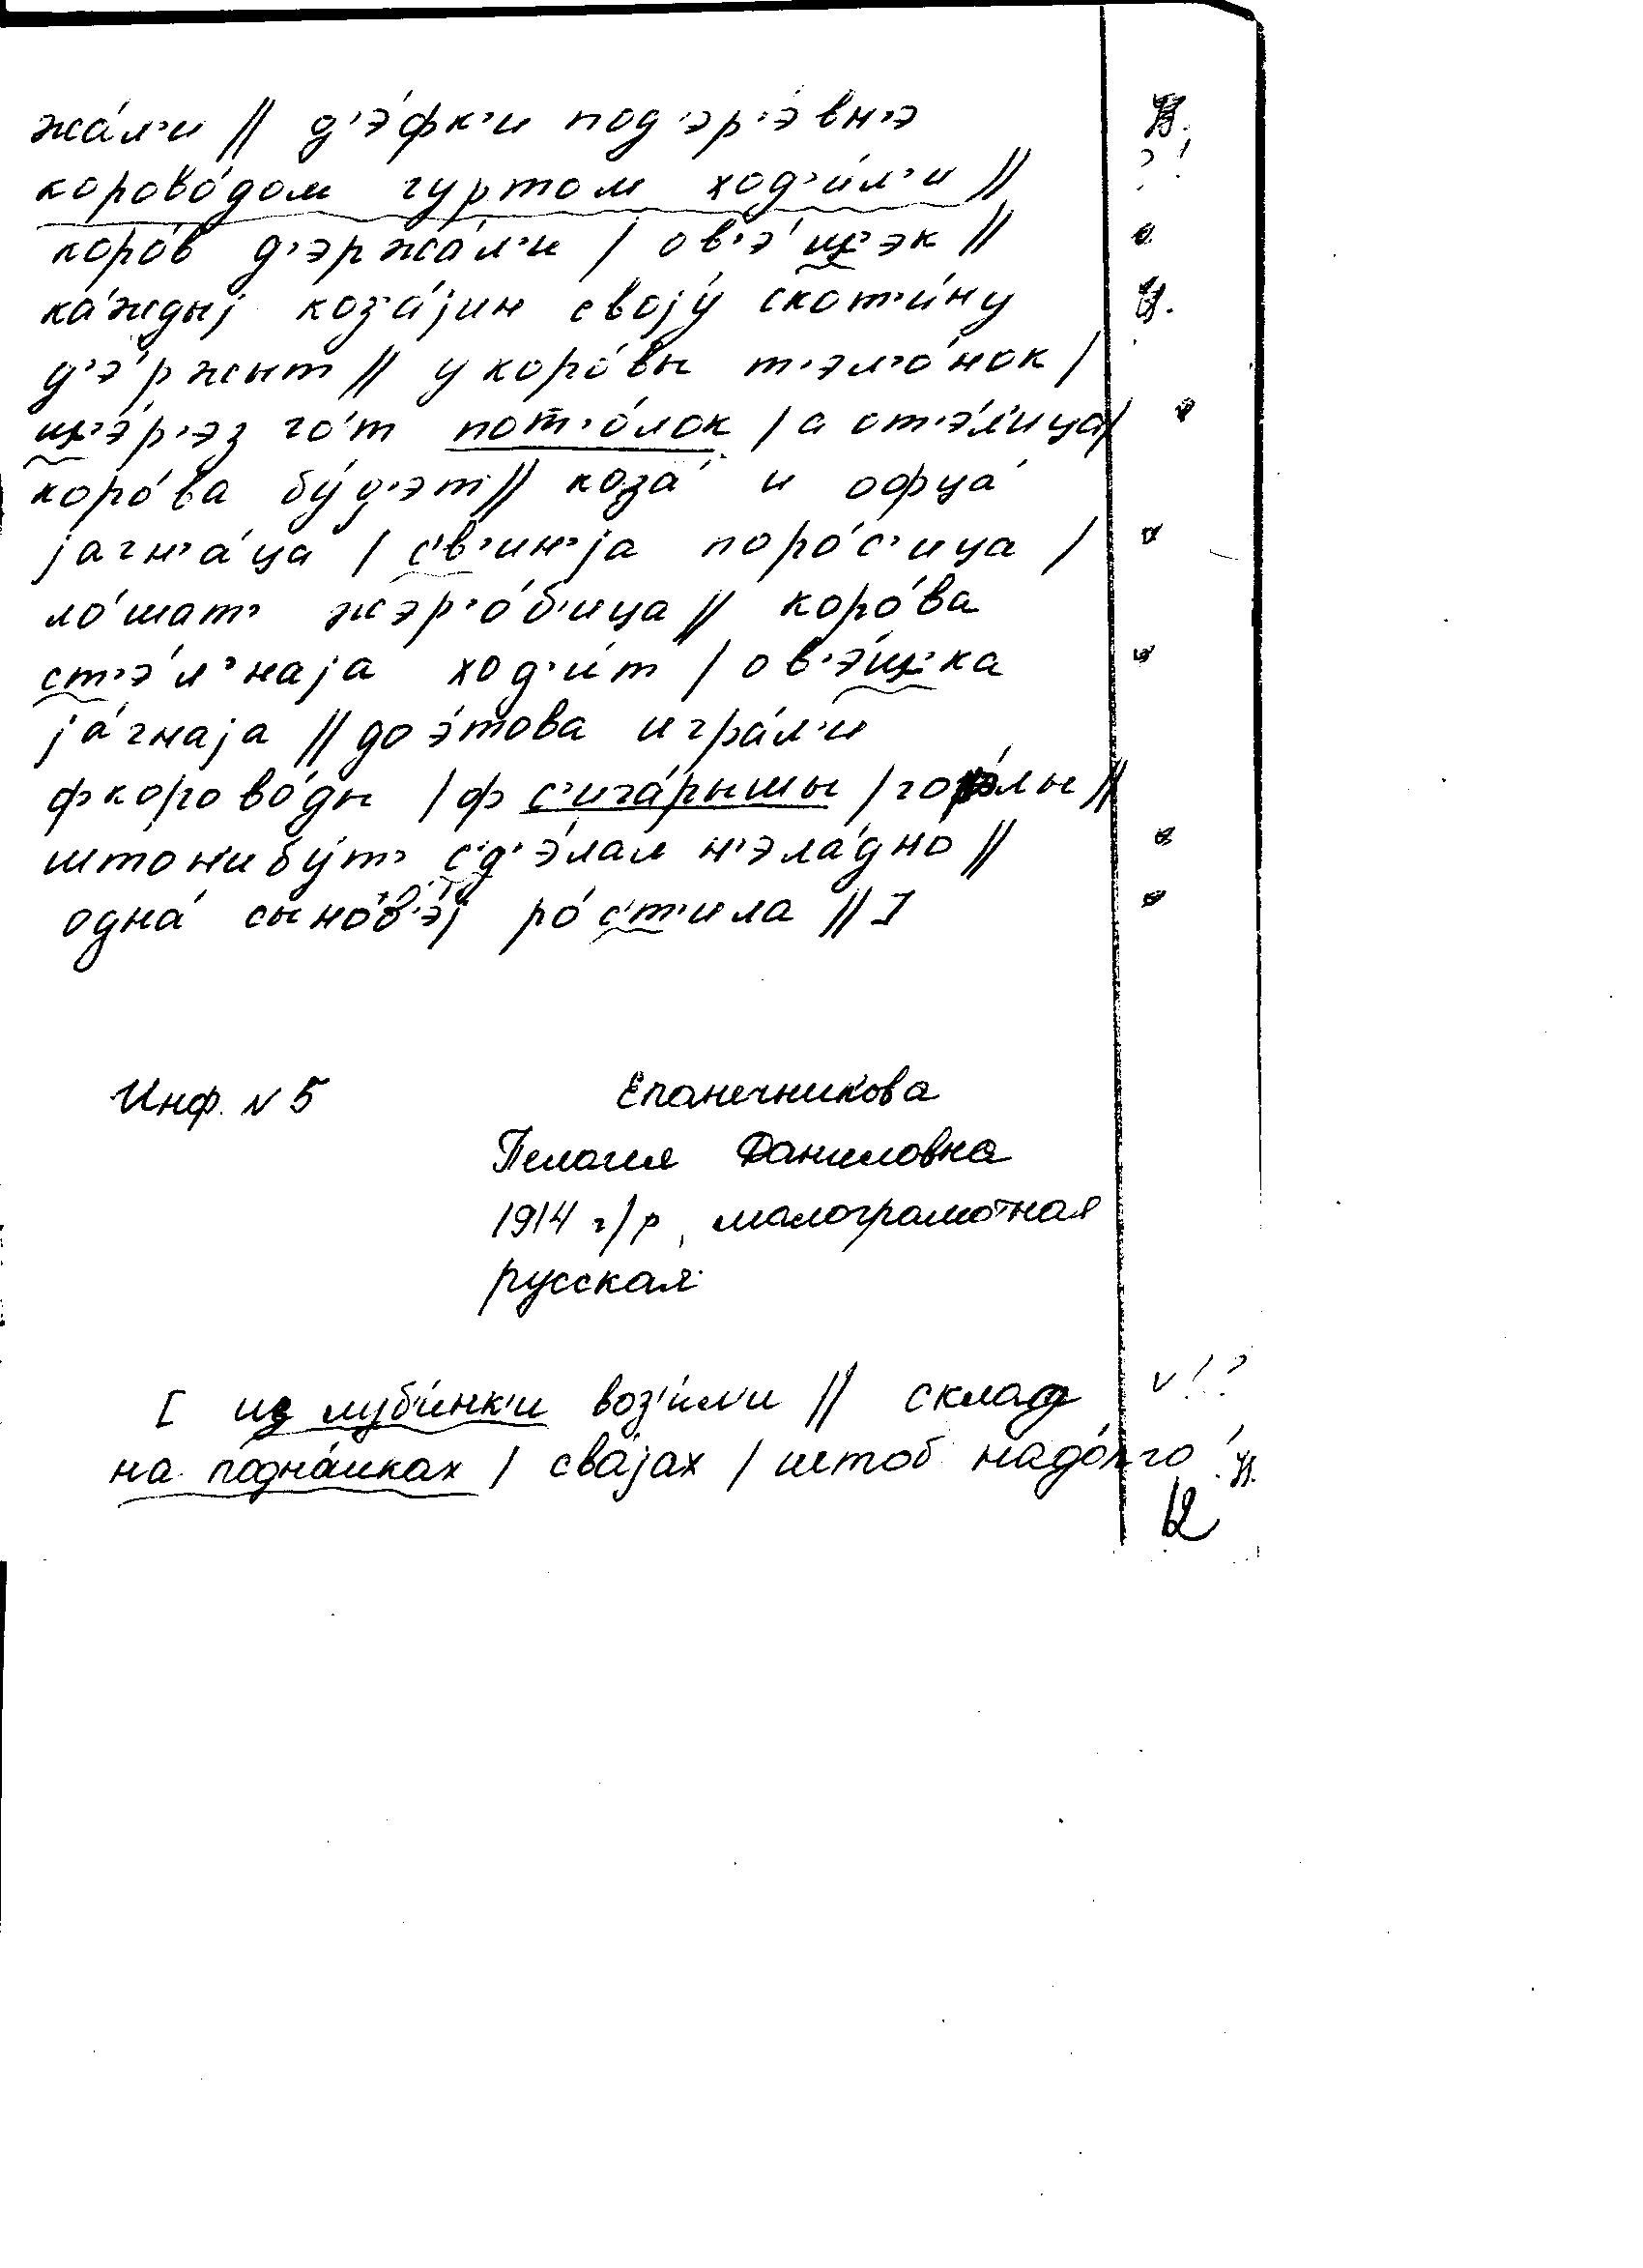 жа́л'и // д'э́фк'и под'эр'э́вн'э
корово́дом гуртом ход'и́л'и //
коро́в д'эржа́л'и / ов'э́щ'эк //
ка́ждыј коза́јин своју́ скот'и́ну
д'э́ржыт // у коро́вы т'эл'о́нок /
щ'э́р'эз го́т пот'о́лок / а от'э́л'ица /
коро́ва бу́д'эт // коза́ и офца́
јагн'а́ца / с'в'ин'ја поро́с'ица /
ло́шат' жэр'о́б'ица // коро́ва
ст'э́л'наја ход'и́т / ов'э́щ'ка
ја́гнаја // до э́това игра́л'и
фкорово́ды / ф с'ига́рышы / //
штон'ибу́т' с'д'э́лал н'эла́дно //
одна́ сыно́в'э́ј ро́с'т'ила // ]
Инф. N 5 Епанечникова
Пелагея Даниловна
1914 г/р, малограмотная
русская
[ из луб'и́нк'и воз'и́л'и // склад V ! ?
на подна́шках / сва́јах / штоб надо́лго
12